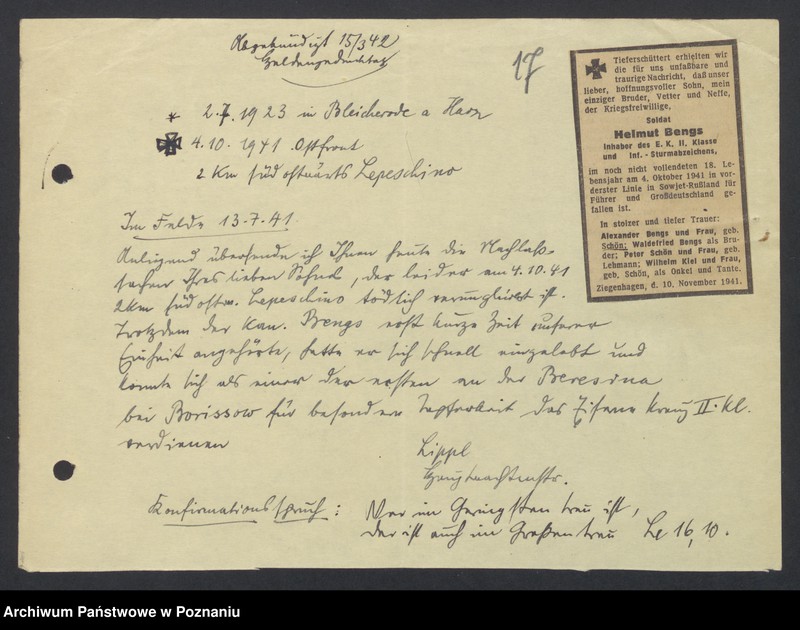 Abgekündigt 15/3 42
Heldengedenktag
17
* 2.7.1923 in Bleicherode a Harz
4.10.1941 Ostfront
2 Km südostwärts Lepeschino
Im Felde 13.7.41.
Anliegend übersende ich Ihnen heute die Nachlaß-
sachen Ihres lieben Sohnes, der leider am 4.10.41
2 km südostw. Lepeschino tödlich verunglückt ist.
Trotzdem der Kan. Bengs erst kurze Zeit unserer
Einheit angehörte, hatte er sich schnell eingelebt und
konnte sich als einer der ersten an der Beresina
bei Borissow für besondere Tapferkeit das Eiserne Kreuz II. Kl.
verdienen
Lippl
Hauptwachtmstr.
Konfirmationsspruch: Wer im Geringsten treu ist,
der ist auch im Großen treu Lc 16,10.
Tieferschüttert erhielten wir
die für uns unfaßbare und
traurige Nachricht, daß unser
lieber, hoffnungsvoller Sohn, mein
einziger Bruder, Vetter und Neffe,
der Kriegsfreiwillige,
Soldat
Helmut Bengs
Inhaber des E. K. II. Klasse
und Inf.-Sturmabzeichens,
im noch nicht vollendeten 18. Le-
bensjahr am 4. Oktober 1941 in vor-
derster Linie in Sowjet-Rußland für
Führer und Großdeutschland ge-
fallen ist.
In stolzer und tiefer Trauer:
Alexander Bengs und Frau, geb.
Schön; Waldefried Bengs als Bru-
der; Peter Schön und Frau, geb.
Lehmann; Wilhelm Kiel und Frau,
geb. Schön, als Onkel und Tante.
Ziegenhagen, d. 10. November 1941.
Archiwum Państwowe w Poznaniu